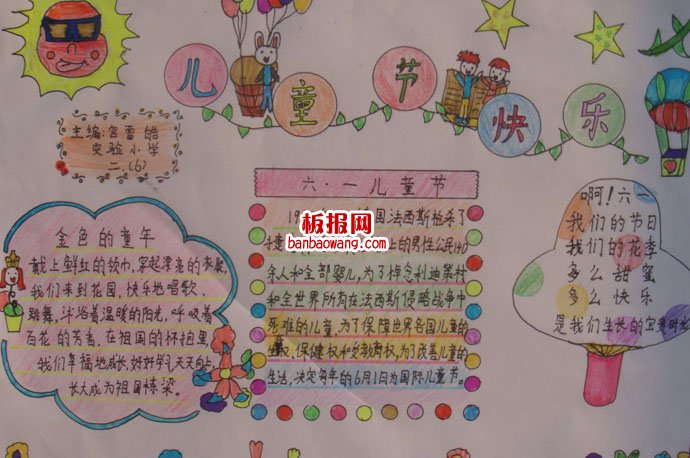 儿童节快乐
主编:宫雷皓
实验小学
二.(6)
金色的童年
戴上鲜红的领巾,穿起漂亮的衣裳,
我们来到花园,快乐地唱歌、
跳舞,斗浴着温暖的阳光,呼吸着
百花的芳香,在祖国的怀抱里,
我们幸福地成长,好好学习天天向上,
长大成为祖国栋梁。
六·一儿童节
国法西斯枪杀了
上的男性公民140
余人和全部婴儿,为了悼念利迪策村
和全世界所有在法西斯侵略战争中
死难的儿童,为了保障世界各国儿童的
权,保健权和受教育权,为了改善儿童的
生活,决定每年的6月1日为国际儿童节。
啊!六一
我们的节日
我们的花季
多么甜蜜
多么快乐
是我们生长的宝贵时光
板报网
banbaowang.com